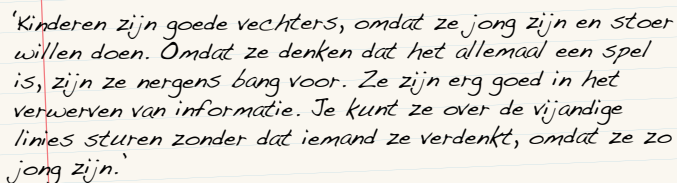 'Kinderen zijn goede vechters, omdat ze jong zijn en stoer
willen doen. Omdat ze denken dat het allemaal een spel
is, zijn ze nergens bang voor. Ze zijn erg goed in het
verwerven van informatie. Je kunt ze over de vijandige
linies sturen zonder dat iemand ze verdenkt, omdat ze zo
jong zijn.'